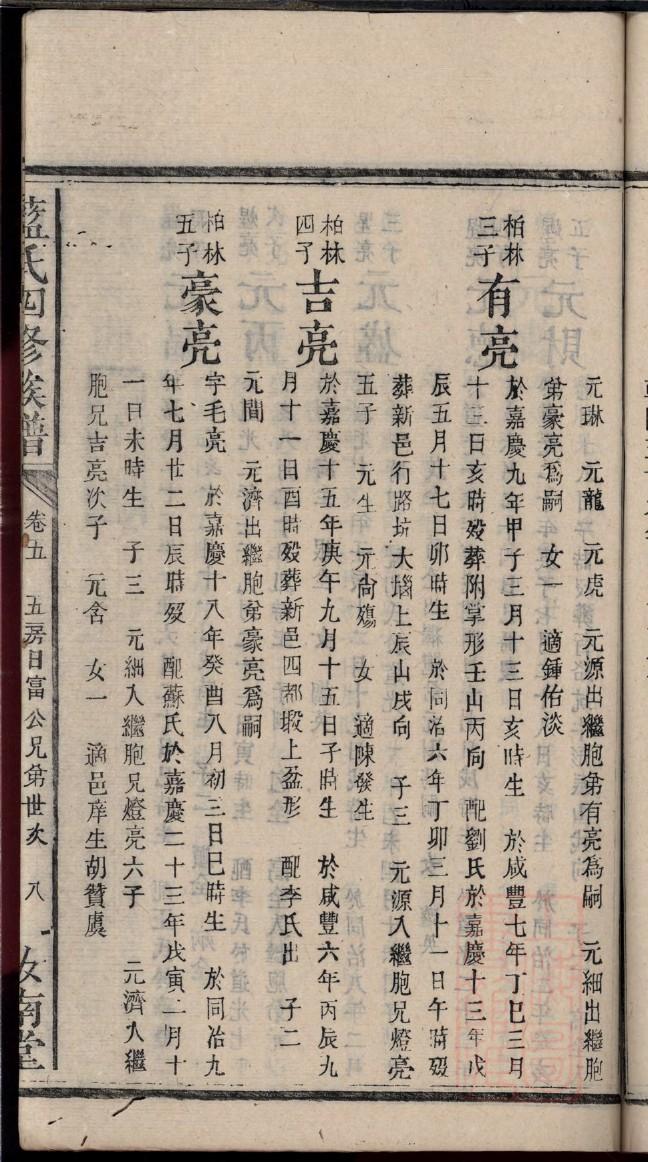 元琳　元龍　元虎　元源出繼胞弟有亮為嗣　元細出繼胞
弟豪亮為嗣　女一　適鍾佑淡
柏林三子　有亮　於嘉慶九年甲子三月十三日亥時生　於咸豐七年丁巳三月
十三日亥時歿葬附掌形壬山丙向　配劉氏於嘉慶十三年戊
辰五月十七日卯時生　於同治六年丁卯三月十一日午時歿
葬新邑行路坑大堖上辰山戌向　子三　元源入繼胞兄燈亮
五子　元生　元尙殤　女　適陳發生
柏林四子　吉亮　於嘉慶十五年庚午九月十五日子時生　於咸豐六年丙辰九
月十一日酉時歿葬新邑四都塅上盆形　配李氏出　子二
元間　元濟出繼胞弟豪亮為嗣
柏林五子　豪亮　字毛亮　於嘉慶十八年癸酉八月初三日巳時生　於同治九
年七月廿二日辰時歿　配蘇氏於嘉慶二十三年戊寅二月十
一日未時生　子三　元細入繼胞兄燈亮六子　元濟入繼
胞兄吉亮次子　元舍　女一　適邑庠生胡贊虞
藍氏四修族譜　卷五　五房日富公兄弟世次　八　汝南堂